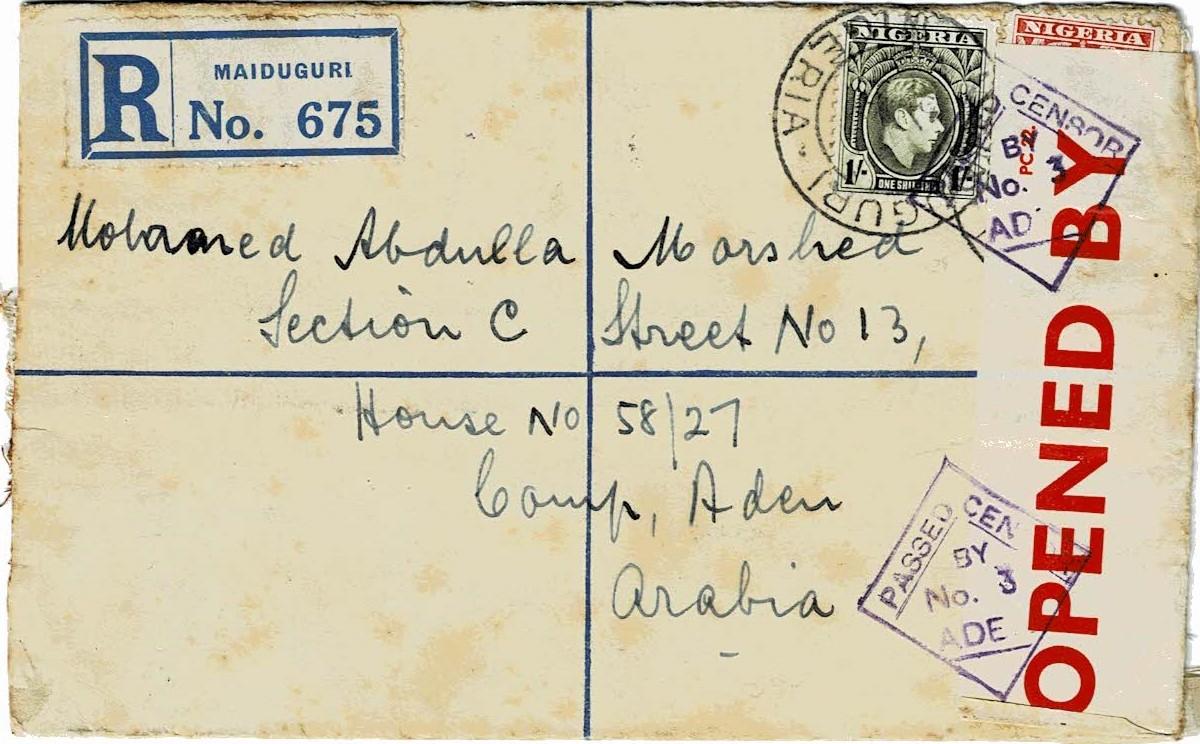 R
MAIDUGURI
No. 675
NIGERIA
1/-
ONE SHILLING
1/-
NIGERIA
GURI
ERIA
CENSOR
BY
No. 3
AD
PC.22.
OPENED BY
Mohamed Abdulla Morshed
Section C Street No 13,
House No 58/27
Camp, Aden
Arabia
PASSED CEN
BY
No. 3
ADE